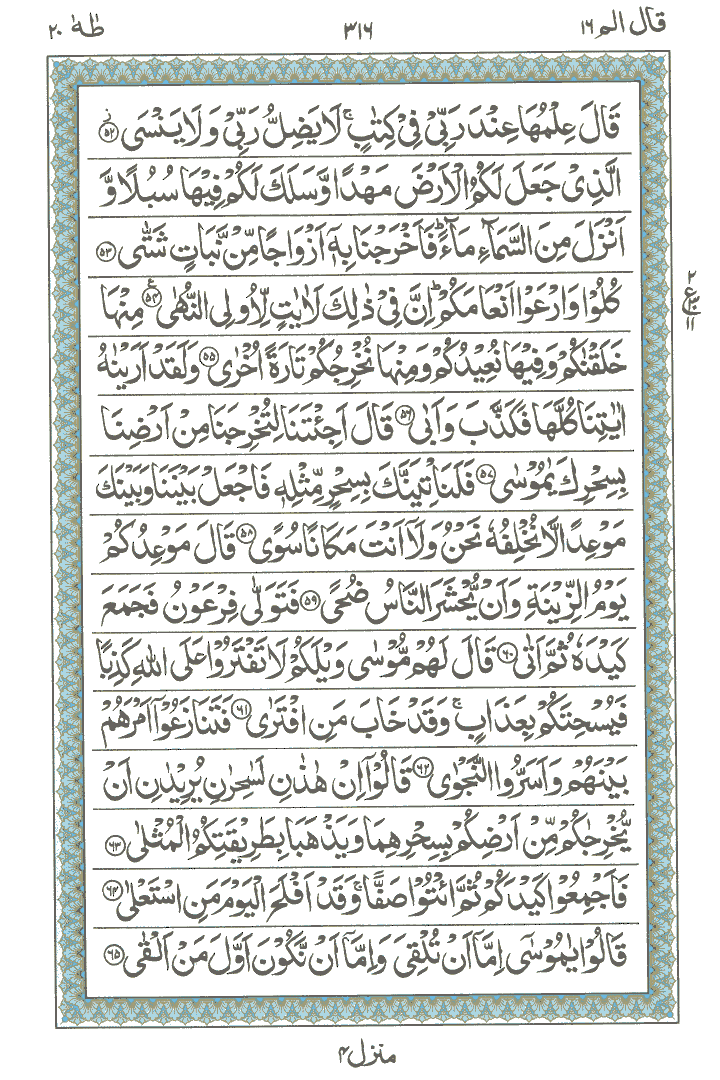 قال الم ١٦ ٣١٦ طٰهٰ ٢٠
قَالَ عِلْمُهَا عِنْدَ رَبِّیْ فِیْ كِتٰبٍ ۚ لَا یَضِلُّ رَبِّیْ وَ لَا یَنْسَى ۫﴿۵۲﴾
الَّذِیْ جَعَلَ لَكُمُ الْاَرْضَ مَهْدًا وَّ سَلَكَ لَكُمْ فِیْهَا سُبُلًا وَّ
اَنْزَلَ مِنَ السَّمَآءِ مَآءً ؕ فَاَخْرَجْنَا بِهٖۤ اَزْوَاجًا مِّنْ نَّبَاتٍ شَتّٰى ﴿۵۳﴾
كُلُوْا وَ ارْعَوْا اَنْعَامَكُمْ ؕ اِنَّ فِیْ ذٰلِكَ لَاٰیٰتٍ لِّاُولِی النُّهٰى ﴿۵۴﴾ۧ مِنْهَا
٢ ع ١١
خَلَقْنٰكُمْ وَ فِیْهَا نُعِیْدُكُمْ وَ مِنْهَا نُخْرِجُكُمْ تَارَةً اُخْرٰى ﴿۵۵﴾ وَ لَقَدْ اَرَیْنٰهُ
اٰیٰتِنَا كُلَّهَا فَكَذَّبَ وَ اَبٰى ﴿۵۶﴾ قَالَ اَجِئْتَنَا لِتُخْرِجَنَا مِنْ اَرْضِنَا
بِسِحْرِكَ یٰمُوْسٰى ﴿۵۷﴾ فَلَنَاْتِیَنَّكَ بِسِحْرٍ مِّثْلِهٖ فَاجْعَلْ بَیْنَنَا وَ بَیْنَكَ
مَوْعِدًا لَّا نُخْلِفُهٗ نَحْنُ وَ لَاۤ اَنْتَ مَكَانًا سُوًى ﴿۵۸﴾ قَالَ مَوْعِدُكُمْ
یَوْمُ الزِّیْنَةِ وَ اَنْ یُّحْشَرَ النَّاسُ ضُحًى ﴿۵۹﴾ فَتَوَلّٰى فِرْعَوْنُ فَجَمَعَ
كَیْدَهٗ ثُمَّ اَتٰى ﴿۶۰﴾ قَالَ لَهُمْ مُّوْسٰى وَیْلَكُمْ لَا تَفْتَرُوْا عَلَى اللّٰهِ كَذِبًا
فَیُسْحِتَكُمْ بِعَذَابٍ ۚ وَ قَدْ خَابَ مَنِ افْتَرٰى ﴿۶۱﴾ فَتَنَازَعُوْۤا اَمْرَهُمْ
بَیْنَهُمْ وَ اَسَرُّوا النَّجْوٰى ﴿۶۲﴾ قَالُوْۤا اِنْ هٰذٰىنِ لَسٰحِرٰنِ یُرِیْدٰنِ اَنْ
یُّخْرِجٰكُمْ مِّنْ اَرْضِكُمْ بِسِحْرِهِمَا وَ یَذْهَبَا بِطَرِیْقَتِكُمُ الْمُثْلٰى ﴿۶۳﴾
فَاَجْمِعُوْا كَیْدَكُمْ ثُمَّ ائْتُوْا صَفًّا ۚ وَ قَدْ اَفْلَحَ الْیَوْمَ مَنِ اسْتَعْلٰى ﴿۶۴﴾
قَالُوْا یٰمُوْسٰۤى اِمَّاۤ اَنْ تُلْقِیَ وَ اِمَّاۤ اَنْ نَّكُوْنَ اَوَّلَ مَنْ اَلْقٰى ﴿۶۵﴾
منزل ٤